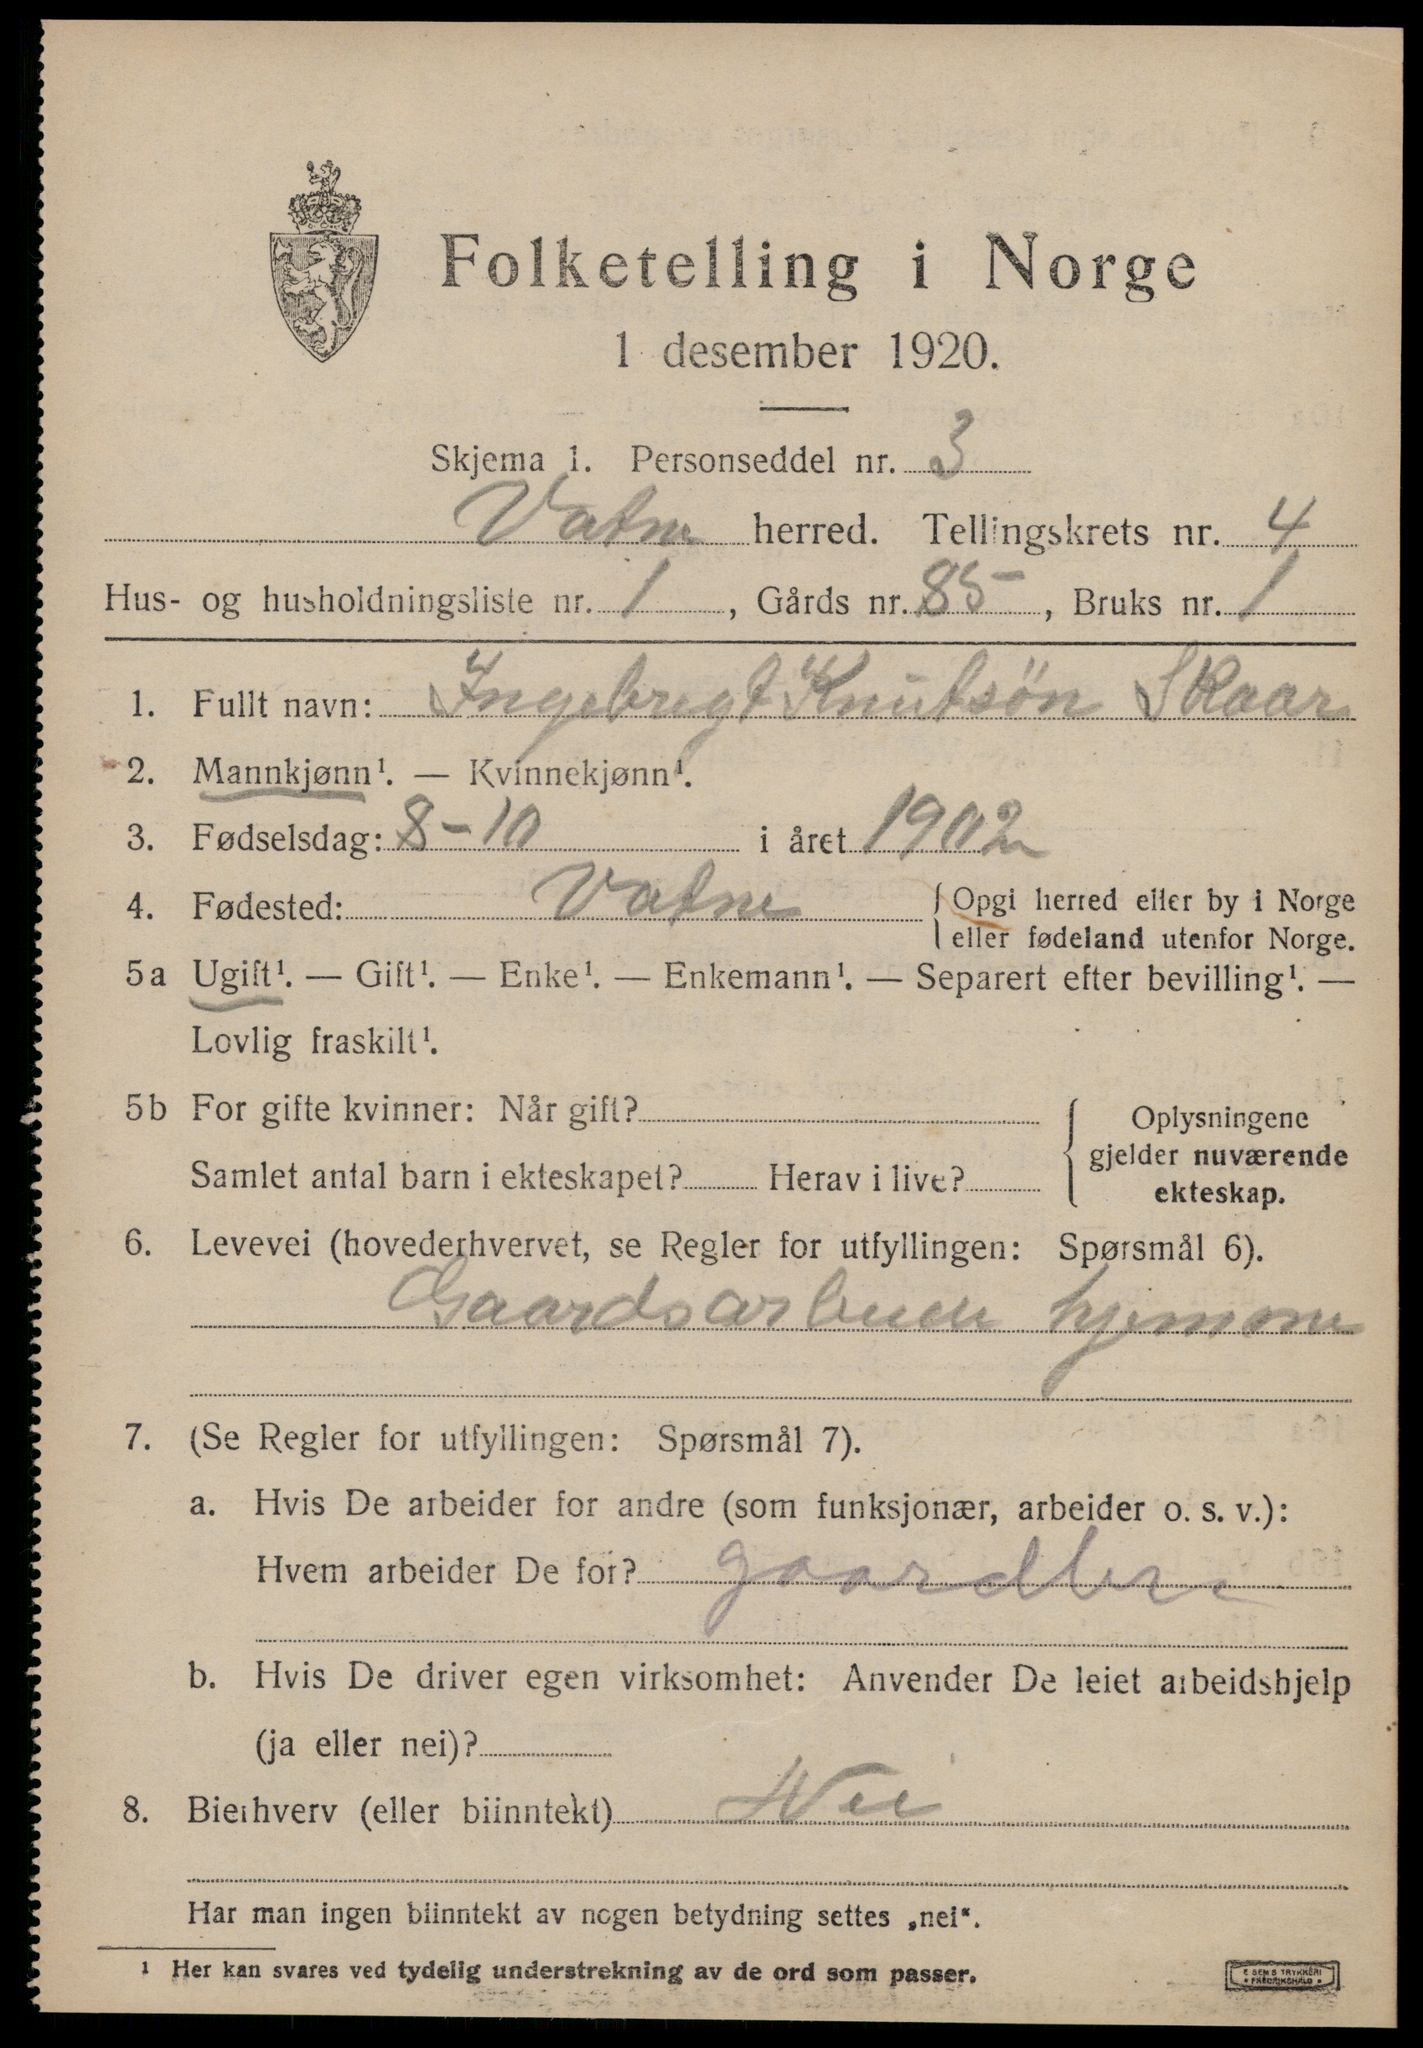 Folketelling i Norge
1 desember 1920.
Skjema 1. Personseddel nr. 3
Vatne herred. Tellingskrets nr. 4
Hus- og husholdningsliste nr. 1, Gårds nr. 85, Bruks nr. 1
1. Fullt navn: Ingebregt Knutsön Skaar
2. Mannkjønn¹. — Kvinnekjønn¹.
3. Fødselsdag: 8-10 i året 1902
4. Fødested: Vatne {Opgi herred eller by i Norge
eller fødeland utenfor Norge.
5a Ugift¹. — Gift¹. — Enke¹. — Enkemann¹. — Separert efter bevilling¹. —
Lovlig fraskilt¹.
5b For gifte kvinner: Når gift? { Oplysningene
gjelder nuværende
Samlet antal barn i ekteskapet? Herav i live? ekteskap.
6. Levevei (hovederhvervet, se Regler for utfyllingen: Spørsmål 6).
Gaardsarbeide hjemme
7. (Se Regler for utfyllingen: Spørsmål 7).
a. Hvis De arbeider for andre (som funksjonær, arbeider o. s. v.):
Hvem arbeider De for?
b. Hvis De driver egen virksomhet: Anvender De leiet arbeidshjelp
(ja eller nei)?
8. Bierhverv (eller biinntekt) Nei
Har man ingen biinntekt av nogen betydning settes „nei“.
¹ Her kan svares ved tydelig understrekning av de ord som passer.
E SEMS TRYKKERI
• FREDRIKSHALD •